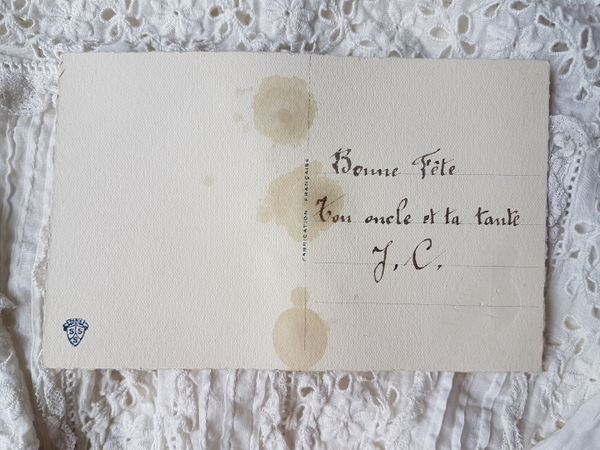 Bonne Fête
Ton oncle et ta tante
J. C.
FABRICATION FRANÇAISE
S S
S